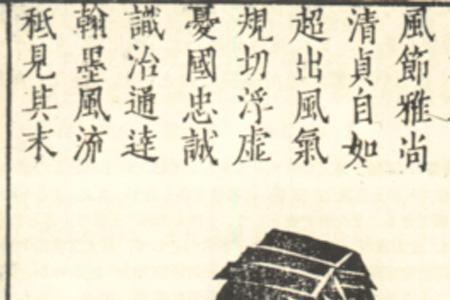 風節雅尚
清貞自如
超出風氣
規切浮虛
憂國忠誠
識治通達
翰墨風流
秪見其末